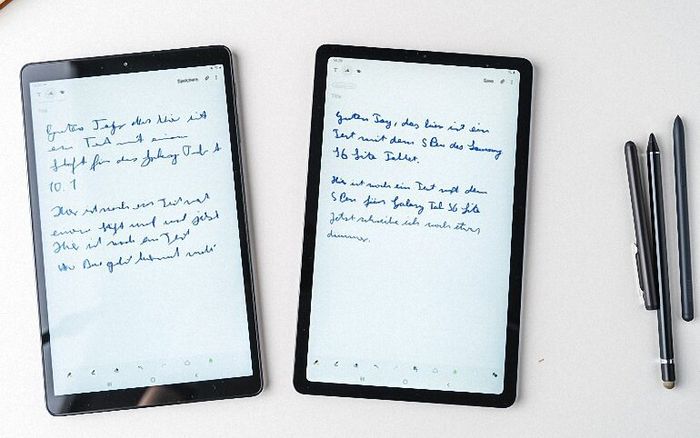 Speichern
Guten Tag, das hier ist
ein Text mit einem
Stift für das Galaxy Tab A
10.1
Hier ist noch ein Text mit
einem Stift und und jetzt
Hier ist noch ein Text
Save
Title
Guten Tag, das hier ist ein
Text mit dem S Pen des Samsung
S6 Lite Tablet.
Hier ist noch ein Text mit dem
S Pen fürs Galaxy Tab S6 Lite
Jetzt schreibe ich noch etwas
dünner.